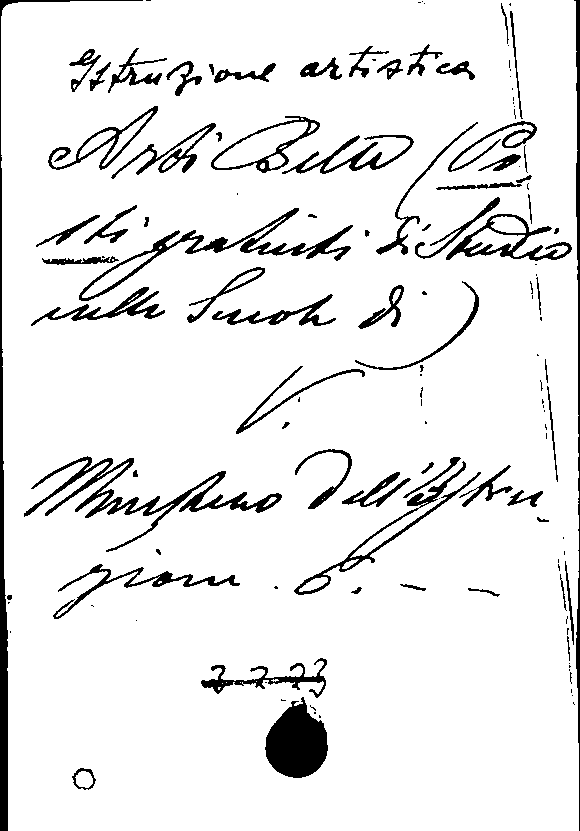 Istruzione artistica
Arti Belle (Po
sti gratuiti di Studio
nelle Scuole di)
V.
Ministero dell'Istru-
zione. P. - -